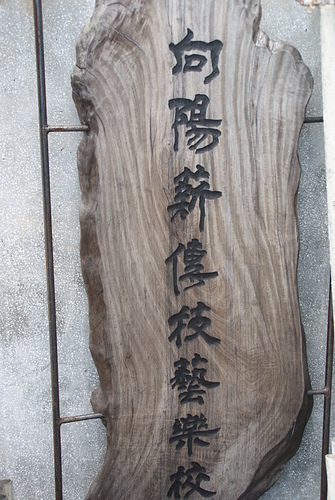 向陽薪傳技藝樂校